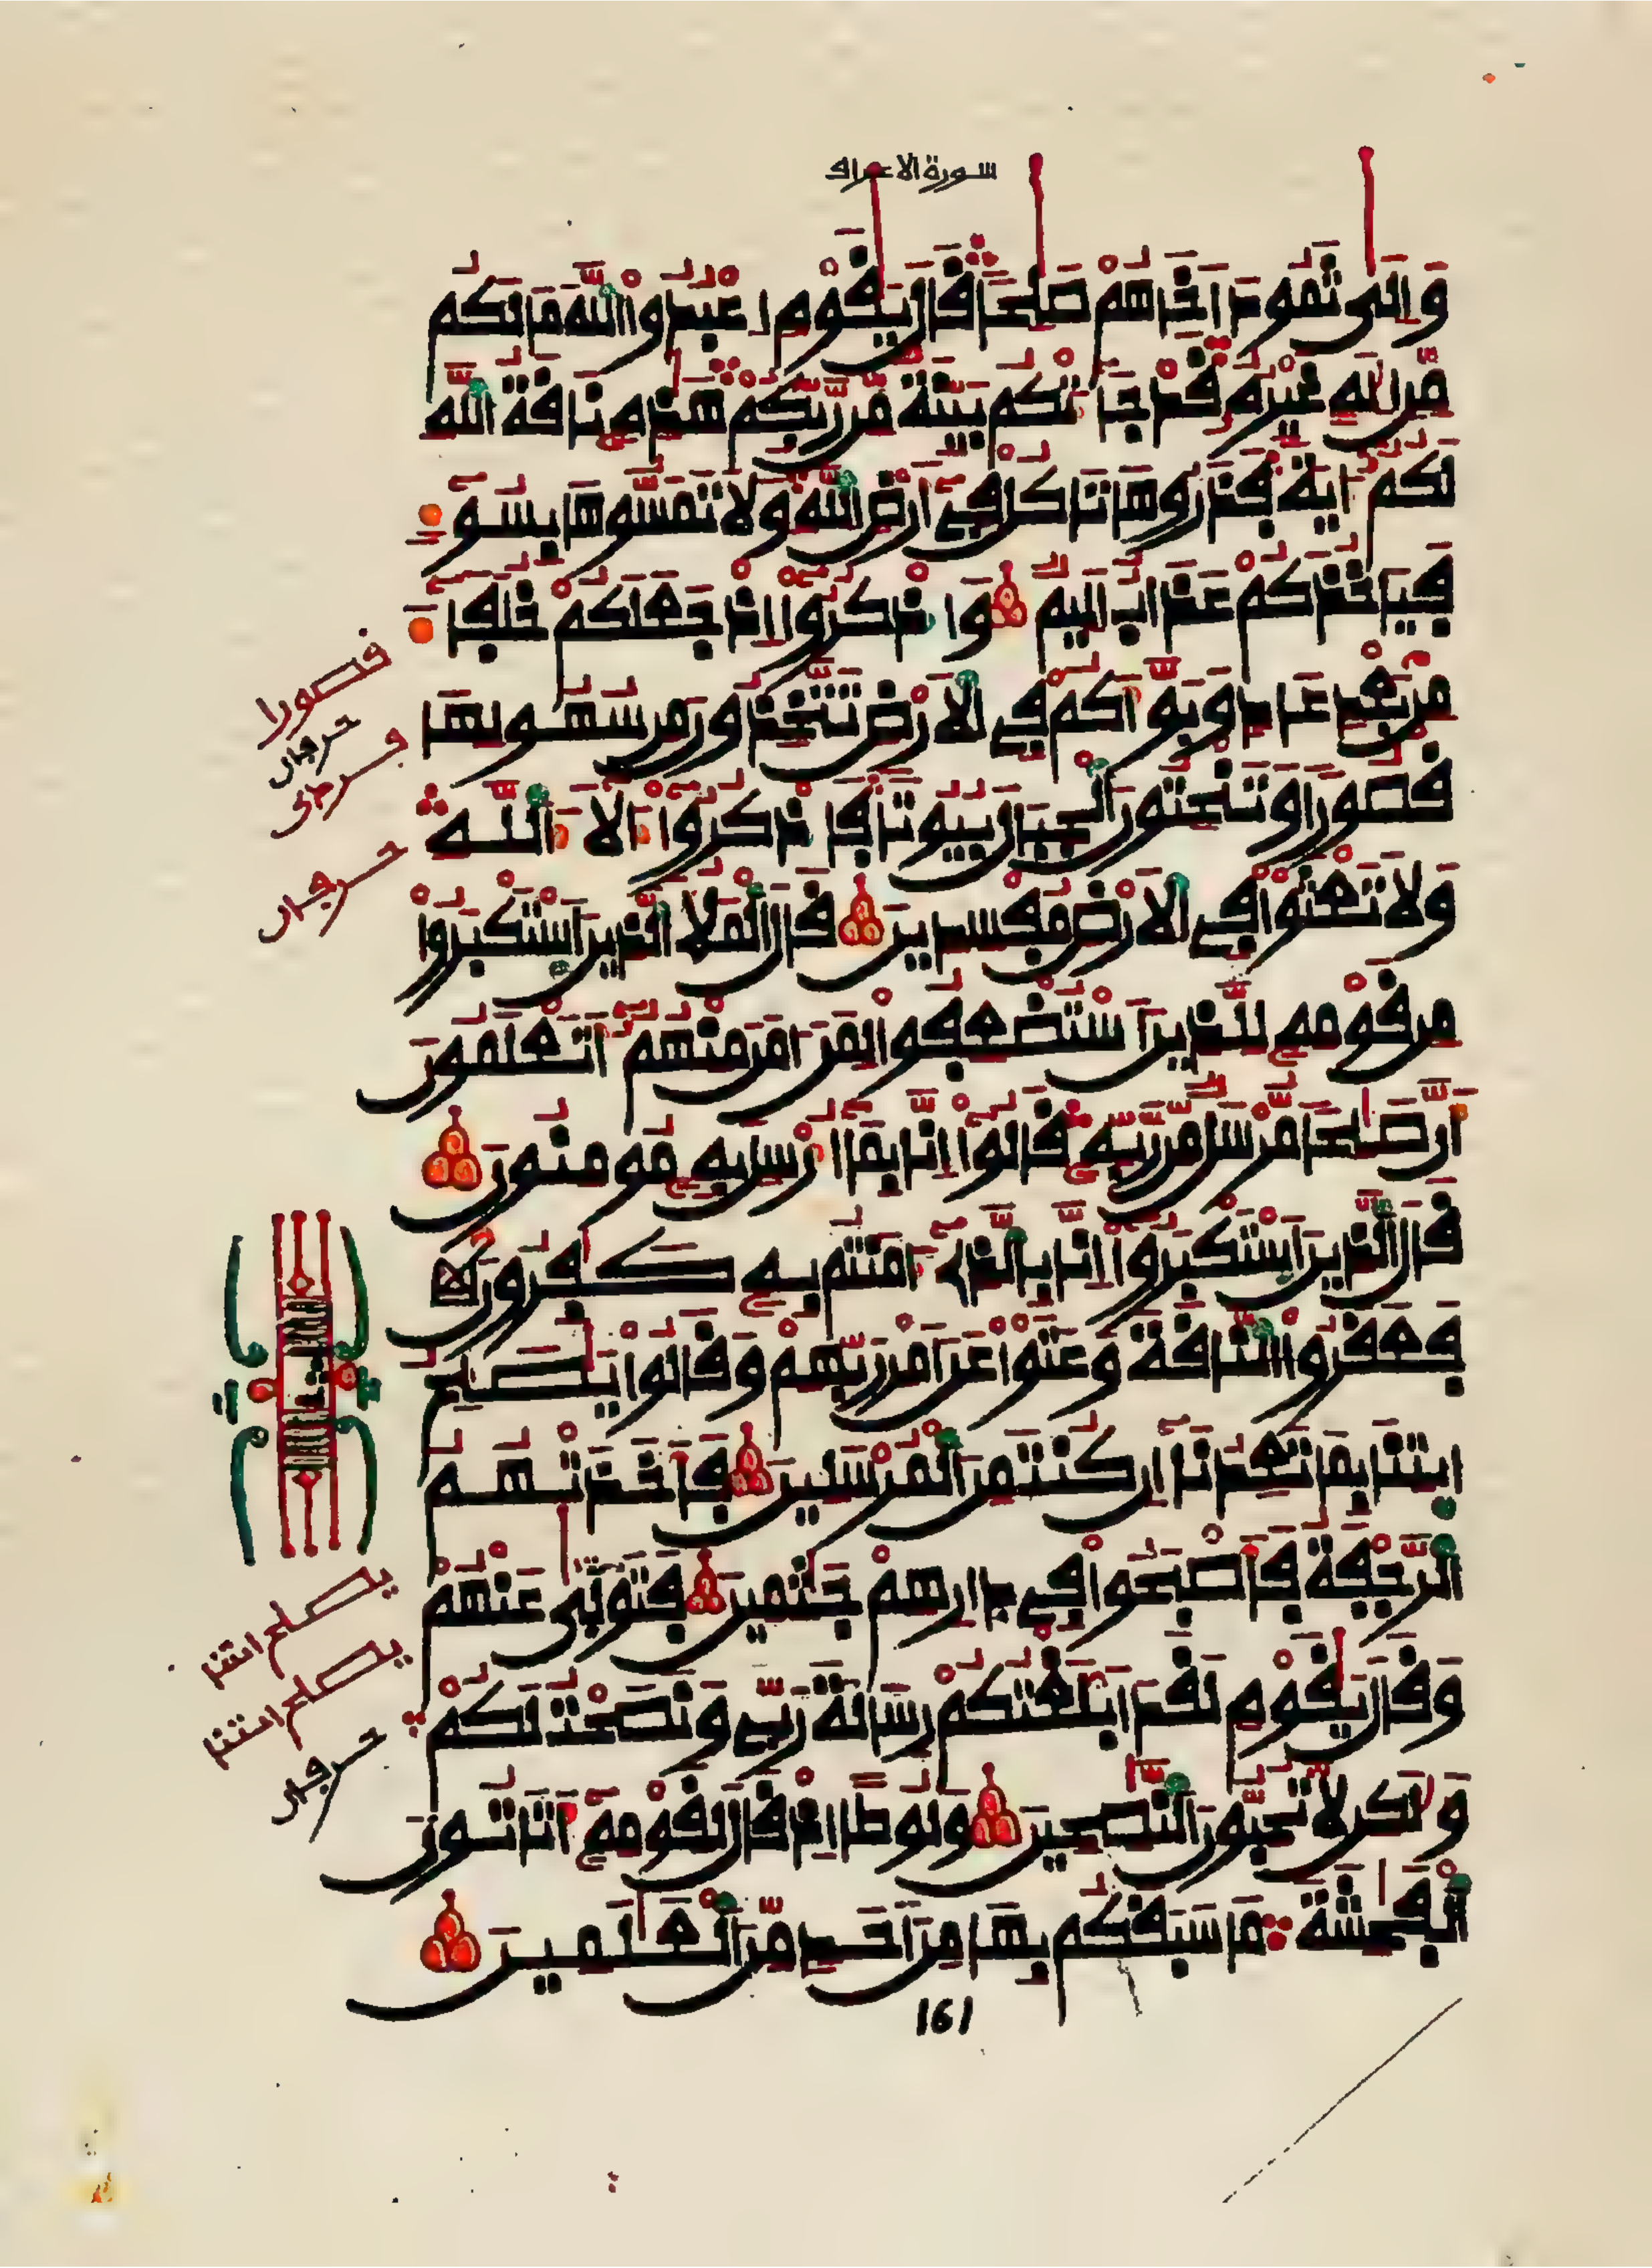 سورة الاعراف
وَإِلَىٰ ثَمُودَ أَخَاهُمْ صَٰلِحًا قَالَ يَٰقَوْمِ اِعْبُدُوا۟ اللَّهَ مَا لَكُم
مِّنِ اِلَٰهٍ غَيْرُهُۥ قَدْ جَآءَتْكُم بَيِّنَةٌ مِّن رَّبِّكُمْ هَٰذِهِۦ نَاقَةُ اللَّهِ
لَكُمُۥٓ ءَايَةً فَذَرُوهَا تَاكُلْ فِىٓ أَرْضِ اللَّهِ وَلَا تَمَسُّوهَا بِسُوٓءٍ
فَيَاخُذَكُمْ عَذَابٌ اَلِيمٌ وَاذْكُرُوٓا۟ إِذْ جَعَلَكُمْ خُلَفَآءَ
مِنۢ بَعْدِ عَادٍ وَبَوَّأَكُمْ فِى الْأَرْضِ تَتَّخِذُونَ مِن سُهُولِهَا
قُصُورًا وَتَنْحِتُونَ الْجِبَالَ بِيُوتًا فَاذْكُرُوٓا۟ ءَالَآءَ اللَّهِ
وَلَا تَعْثَوْا۟ فِى الْأَرْضِ مُفْسِدِينَ قَالَ الْمَلَأُ الَّذِينَ اَسْتَكْبَرُوا۟
مِن قَوْمِهِۦ لِلَّذِينَ اَسْتُضْعِفُوا۟ لِمَنَ اٰمَنَ مِنْهُمُۥٓ أَتَعْلَمُونَ
أَنَّ صَٰلِحًا مُّرْسَلٌ مِّن رَّبِّهِۦ قَالُوٓا۟ إِنَّا بِمَآ أُرْسِلَ بِهِۦ مُومِنُونَ
قَالَ الَّذِينَ اَسْتَكْبَرُوٓا۟ إِنَّا بِالَّذِىٓ ءَامَنتُم بِهِۦ كَٰفِرُونَ
فَعَقَرُوا۟ النَّاقَةَ وَعَتَوْا۟ عَنَ اَمْرِ رَبِّهِمْ وَقَالُوا۟ يَٰصَٰلِحُ
ايتِنَا بِمَا تَعِدُنَآ إِن كُنتَ مِنَ الْمُرْسَلِينَ فَأَخَذَتْهُمُ
الرَّجْفَةُ فَأَصْبَحُوا۟ فِى دَارِهِمْ جَٰثِمِينَ فَتَوَلَّىٰ عَنْهُمْ
وَقَالَ يَٰقَوْمِ لَقَدَ اَبْلَغْتُكُمْ رِسَالَةَ رَبِّى وَنَصَحْتُ لَكُمْ
وَلَٰكِن لَّا تُحِبُّونَ النَّٰصِحِينَ وَلُوطًا إِذْ قَالَ لِقَوْمِهِۦٓ أَتَاتُونَ
الْفَٰحِشَةَ مَا سَبَقَكُم بِهَا مِنَ اَحَدٍ مِّنَ الْعَٰلَمِينَ
161
قصورا
حرفان
حرفان
يصلح ائتنا
يصلح ائتنا
حرفان